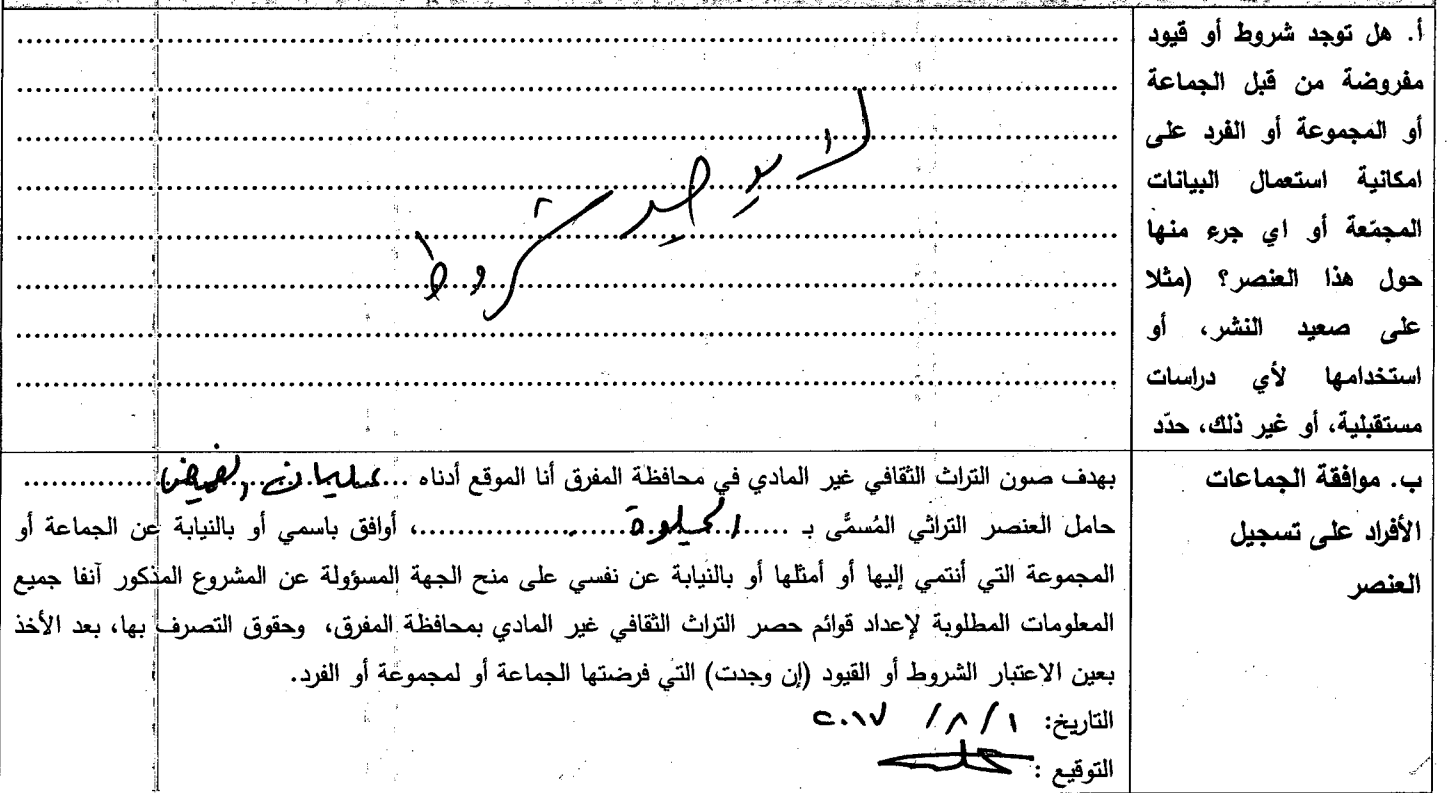 أ. هل توجد شروط أو قيود
مفروضة من قبل الجماعة
أو المجموعة أو الفرد على
امكانية استعمال البيانات
المجمّعة أو اي جرء منها
حول هذا العنصر؟ (مثلا
على صعيد النشر، أو
استخدامها لأي دراسات
مستقبلية، أو غير ذلك، حدّد
لا يوجد شروط
ب. موافقة الجماعات
الأفراد على تسجيل
العنصر
بهدف صون التراث الثقافي غير المادي في محافظة المفرق أنا الموقع أدناه ... سليمان ...............
حامل العنصر التراثي المُسمَّى بـ ...........................، أوافق باسمي أو بالنيابة عن الجماعة أو
المجموعة التي أنتمي إليها أو أمثلها أو بالنيابة عن نفسي على منح الجهة المسؤولة عن المشروع المذكور آنفا جميع
المعلومات المطلوبة لإعداد قوائم حصر التراث الثقافي غير المادي بمحافظة المفرق، وحقوق التصرف بها، بعد الأخذ
بعين الاعتبار الشروط أو القيود (إن وجدت) التي فرضتها الجماعة أو لمجموعة أو الفرد.
التاريخ: ١ / ٨ / ٢٠١٧
التوقيع :